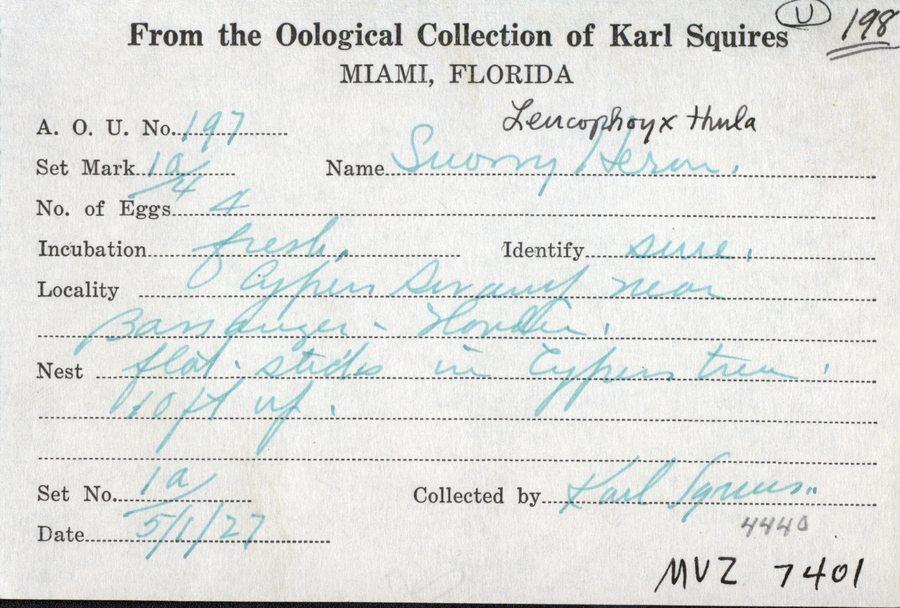 From the Oological Collection of Karl Squires
U 198
MIAMI, FLORIDA
Leucophoyx thula
A. O. U. No. 197
Set Mark 1a/4 Name Snowy Heron.
No. of Eggs 4
Incubation fresh. Identify sure.
Locality Cypress Swamp near
Bassenger - Florida.
Nest flat - sticks in Cypress tree.
10 ft up.
Set No. 1a
Collected by Karl Squires
Date 5/1/27
4440
MVZ 7401